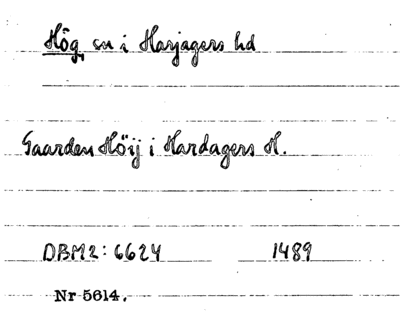 Hög sn i Harjagers hd
Gaarden Höij i Hardagers H.
DBM2: 6624 1489
Nr 5614.